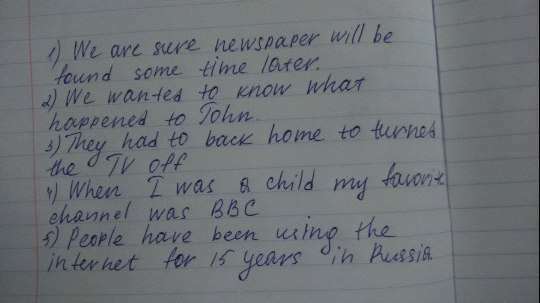 1) We are sure newspaper will be
found some time later.
2) We wanted to know what
happened to John.
3) They had to back home to turned
the TV off
4) When I was a child my favorite
channel was BBC
5) People have been using the
internet for 15 years in Russia